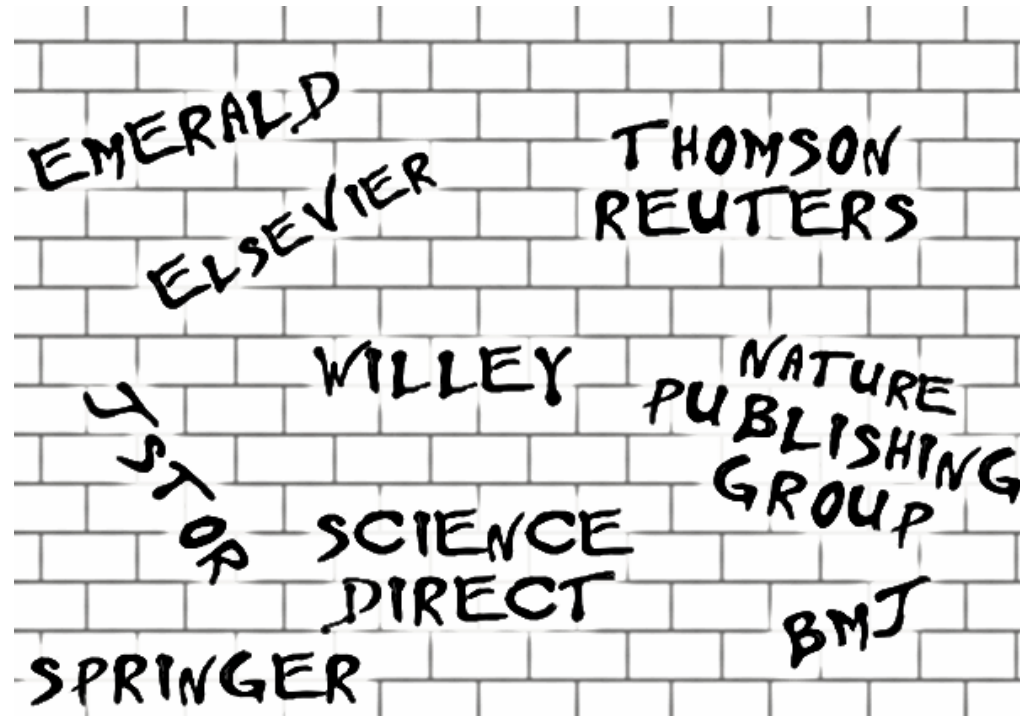 EMERALD
ELSEVIER
THOMSON
REUTERS
WILLEY
NATURE
PUBLISHING
GROUP
JSTOR
SCIENCE
DIRECT
BMJ
SPRINGER